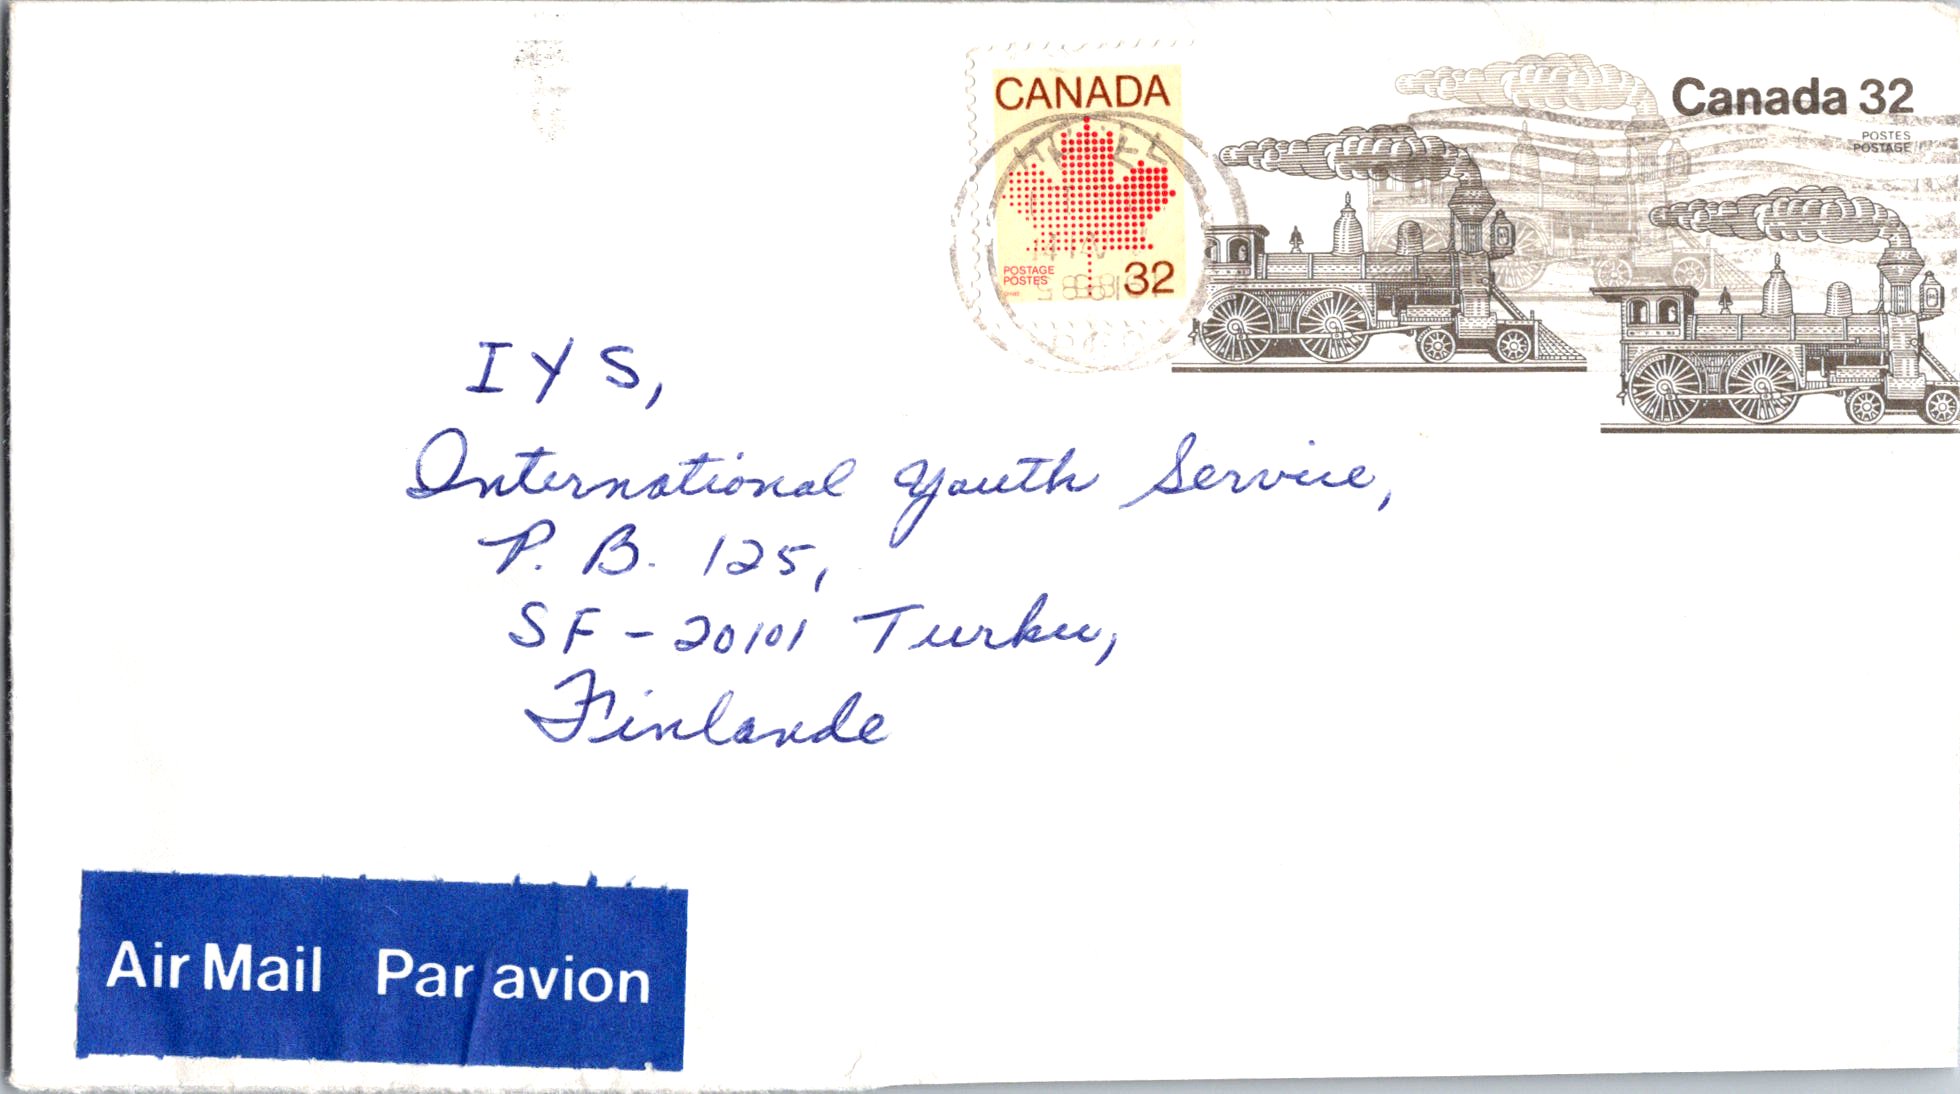 CANADA
POSTAGE
POSTES
32
Canada 32
POSTES
POSTAGE
IYS,
International Youth Service,
P. B. 125,
SF - 20101 Turku,
Finlande
Air Mail Par avion